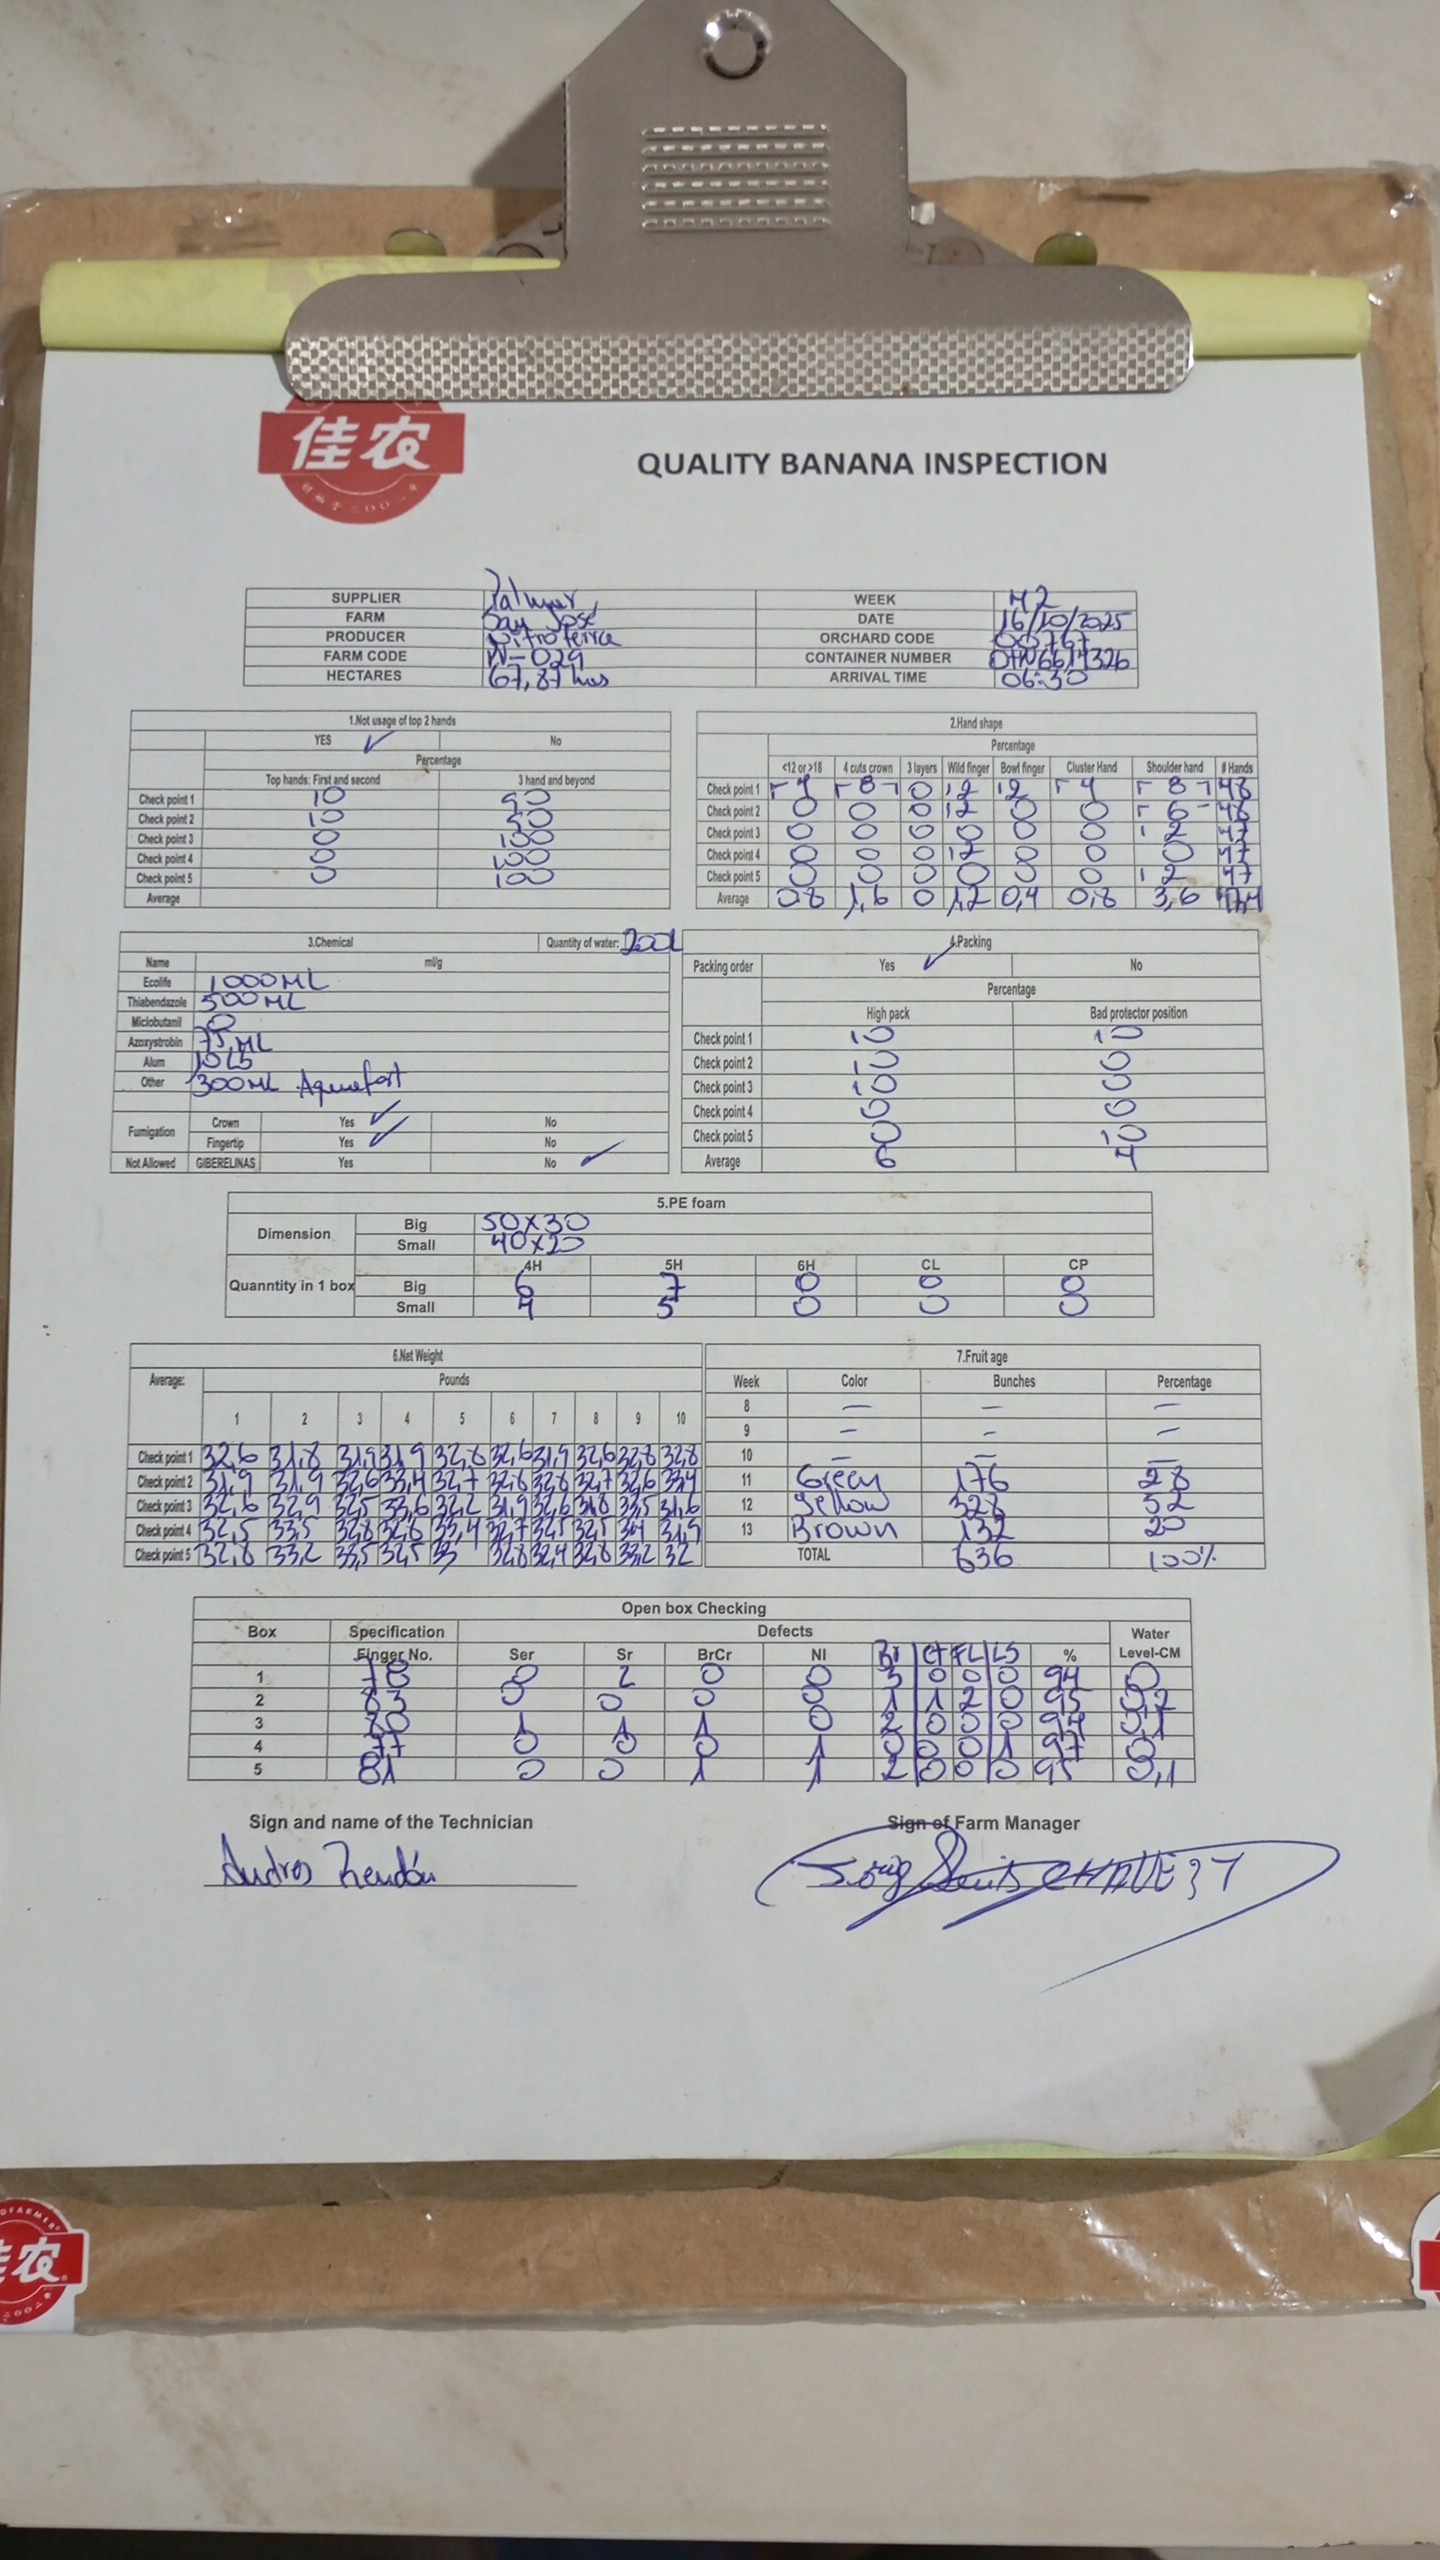 佳农
QUALITY BANANA INSPECTION
SUPPLIER Palmar WEEK 42
FARM San José DATE 16/10/2025
PRODUCER Nitroterra ORCHARD CODE 00767
FARM CODE N-029 CONTAINER NUMBER
HECTARES 67,87 has ARRIVAL TIME 06:30
1.Not usage of top 2 hands
YES ✓ No
Percentage
Top hands: First and second 3 hand and beyond
Check point 1 10 90
Check point 2 10 90
Check point 3 0 100
Check point 4 0 100
Check point 5 0 100
Average
2.Hand shape
Percentage
<12 or >18 4 cuts crown 3 layers Wild finger Bowl finger Cluster Hand Shoulder hand # Hands
Check point 1 4 8 0 2 2 4 8 48
Check point 2 0 0 0 2 0 0 6 48
Check point 3 0 0 0 0 0 0 2 47
Check point 4 0 0 0 2 0 0 0 47
Check point 5 0 0 0 0 0 0 2 47
Average 0,8 1,6 0 1,2 0,4 0,8 3,6 47,4
3.Chemical Quantity of water: 200L
Name ml/g
Ecolife 1000ML
Thiabendazole 500ML
Miclobutanil 0
Azoxystrobin 75 ML
Alum 10 L5
Other 300ML Aquafort
Fumigation Crown Yes ✓ No
Fingertip Yes ✓ No
Not Allowed GIBERELINAS Yes No ✓
4.Packing
Packing order Yes ✓ No
Percentage
High pack Bad protector position
Check point 1 10 10
Check point 2 10 0
Check point 3 10 0
Check point 4 0 0
Check point 5 0 10
Average 6 4
5.PE foam
Dimension Big 50x30
Small 40x20
4H 5H 6H CL CP
Quanntity in 1 box Big 6 7 0 0 0
Small 4 5 0 0 0
6.Net Weight
Average: Pounds
1 2 3 4 5 6 7 8 9 10
Check point 1 32,6 31,8 31,9 31,9 32,8 32,6 31,9 32,6 32,8 32,8
Check point 2 31,9 31,9 32,6 33,4 32,7 32,8 32,8 32,7 32,6 33,4
Check point 3 32,6 32,9 32,5 33,6 32,2 31,9 32,6 31,8 33,5 31,6
Check point 4 32,5 33,5 32,8 32,6 33,4 32,7 32,5 32,5 31,9
Check point 5 32,8 33,2 33,5 32,5 33 32,8 32,4 32,8 33,2 32
7.Fruit age
Week Color Bunches Percentage
8 — — —
9 — — —
10 — — —
11 Green 176 28
12 Yellow 328 52
13 Brown 132 20
TOTAL 636 100%
Open box Checking
Box Specification Defects Water
Finger No. Ser Sr BrCr NI Br CF FL LS % Level-CM
1 78 0 2 0 0 3 0 0 0 94 0
2 83 0 0 0 0 1 1 2 0 95 0,2
3 80 1 1 1 0 2 0 0 0 94 0,1
4 77 0 0 0 1 0 0 0 1 97 0
5 81 0 0 1 1 2 0 0 0 95 0,1
Sign and name of the Technician Sign of Farm Manager
Andres Rendón
佳农